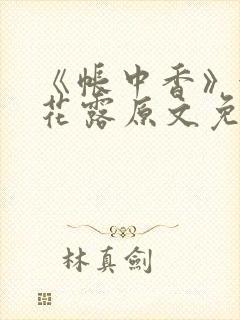 《帐中香》
花露原文免
林真剑